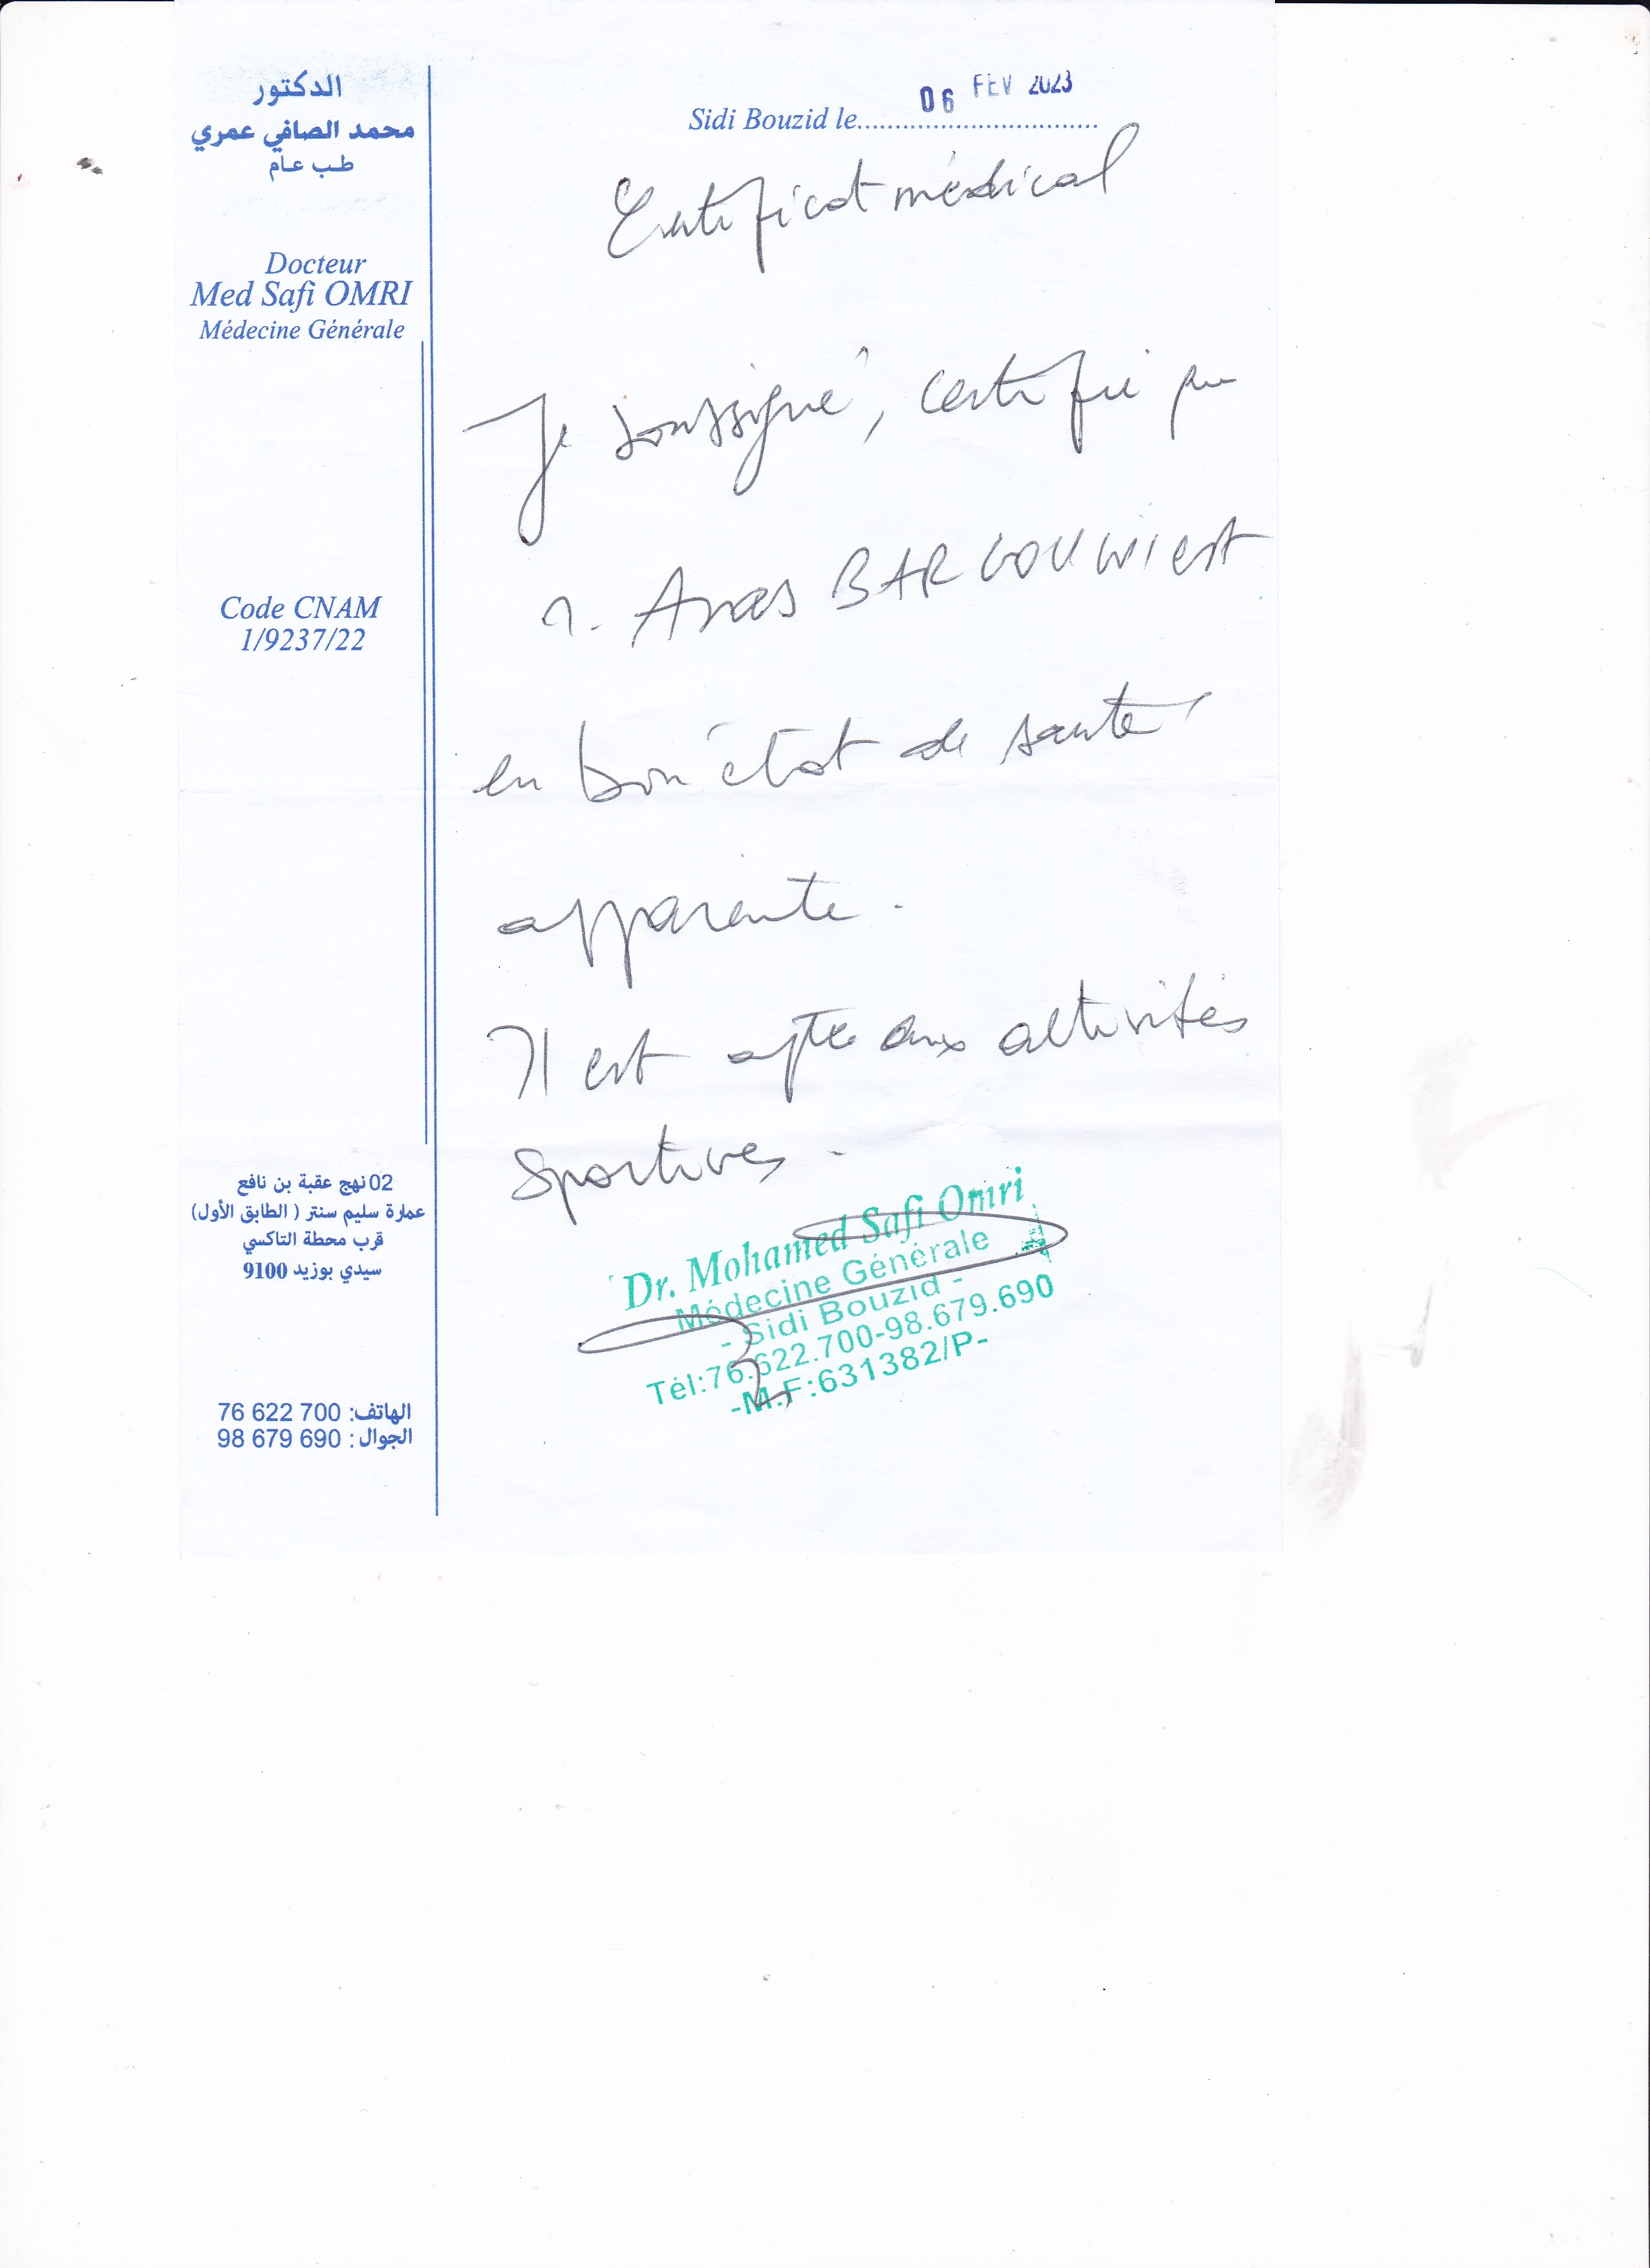 الدكتور
محمد الصافي عمري
طب عام
Docteur
Med Safi OMRI
Médecine Générale
Code CNAM
1/9237/22
02 نهج عقبة بن نافع
عمارة سليم سنتر ( الطابق الأول)
قرب محطة التاكسي
سيدي بوزيد 9100
الهاتف: 76 622 700
الجوال : 98 679 690
Sidi Bouzid le.............................. 06 FEV 2023
Certificat médical
Je soussigné, certifie que
Anas est
en bon état de santé
apparente.
Il est apte aux activités
sportives.
Dr. Mohamed Safi Omri
Médecine Générale
- Sidi Bouzid -
Tél:76.622.700-98.679.690
-M.F:631382/P-